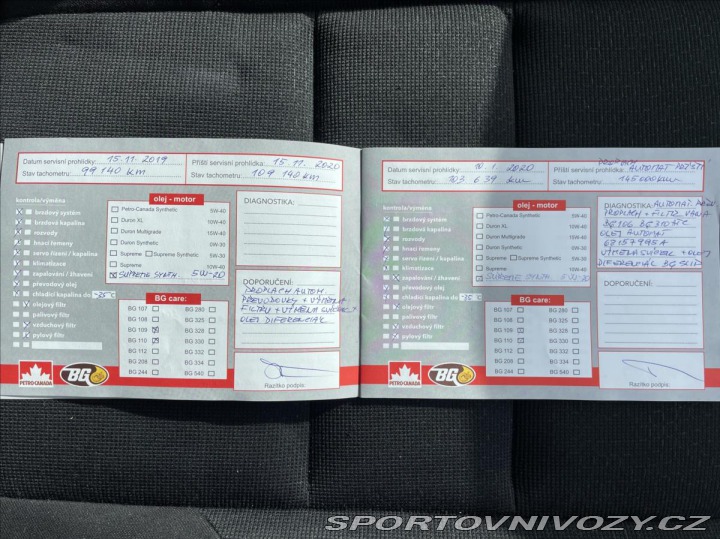 Datum servisní prohlídky: 15.11.2019 Příští servisní prohlídka: 15.11.2020
Stav tachometru: 99 140 KM Stav tachometru: 109 140 KM
kontrola/výměna
brzdový systém
brzdová kapalina
rozvody
hnací řemeny
servo řízení / kapalina
klimatizace
zapalování / žhavení
převodový olej
chladicí kapalina do -25°C
olejový filtr
palivový filtr
vzduchový filtr
pylový filtr
olej - motor
Petro-Canada Synthetic 5W-40
Duron XL 10W-40
Duron Multigrade 15W-40
Duron Synthetic 0W-30
Supreme Supreme Synthetic 5W-30
Supreme 10W-40
SUPREME SYNTH. 5W-20
BG care:
BG 107 BG 280
BG 108 BG 325
BG 109 BG 328
BG 110 BG 330
BG 112 BG 332
BG 208 BG 334
BG 244 BG 540
DIAGNOSTIKA:
DOPORUČENÍ:
PROPLACH AUTOM.
PŘEVODOVKY + VÝMĚNA
FILTRU + VÝMĚNA SVÍČEK +
OLEJ DIFERENCIÁL
Razítko podpis:
PETRO-CANADA
BG
Datum servisní prohlídky: 10.1.2020 Příští servisní prohlídka: AUTOMAT
Stav tachometru: 103 639 km Stav tachometru: 145000km
kontrola/výměna
brzdový systém
brzdová kapalina
rozvody
hnací řemeny
servo řízení / kapalina
klimatizace
zapalování / žhavení
převodový olej
chladicí kapalina do
olejový filtr
palivový filtr
vzduchový filtr
pylový filtr
olej - motor
Petro-Canada Synthetic 5W-40
Duron XL 10W-40
Duron Multigrade 15W-40
Duron Synthetic 0W-30
Supreme Supreme Synthetic 5W-30
Supreme 10W-40
SUPREME SYNTH. 5W-20
BG care:
BG 107 BG 280
BG 108 BG 325
BG 109 BG 328
BG 110 BG 330
BG 112 BG 332
BG 208 BG 334
BG 244 BG 540
DIAGNOSTIKA: AUTOMAT.
PROPLACH + FILTR, VANA
BG 106 BG 310
OLEJ AUTOMAT
68157995A
VÝMĚNA SVÍČEK + OLEJ
DIFERENCIÁL BG
DOPORUČENÍ:
Razítko podpis:
PETRO-CANADA
BG
SPORTOVNIVOZY.CZ